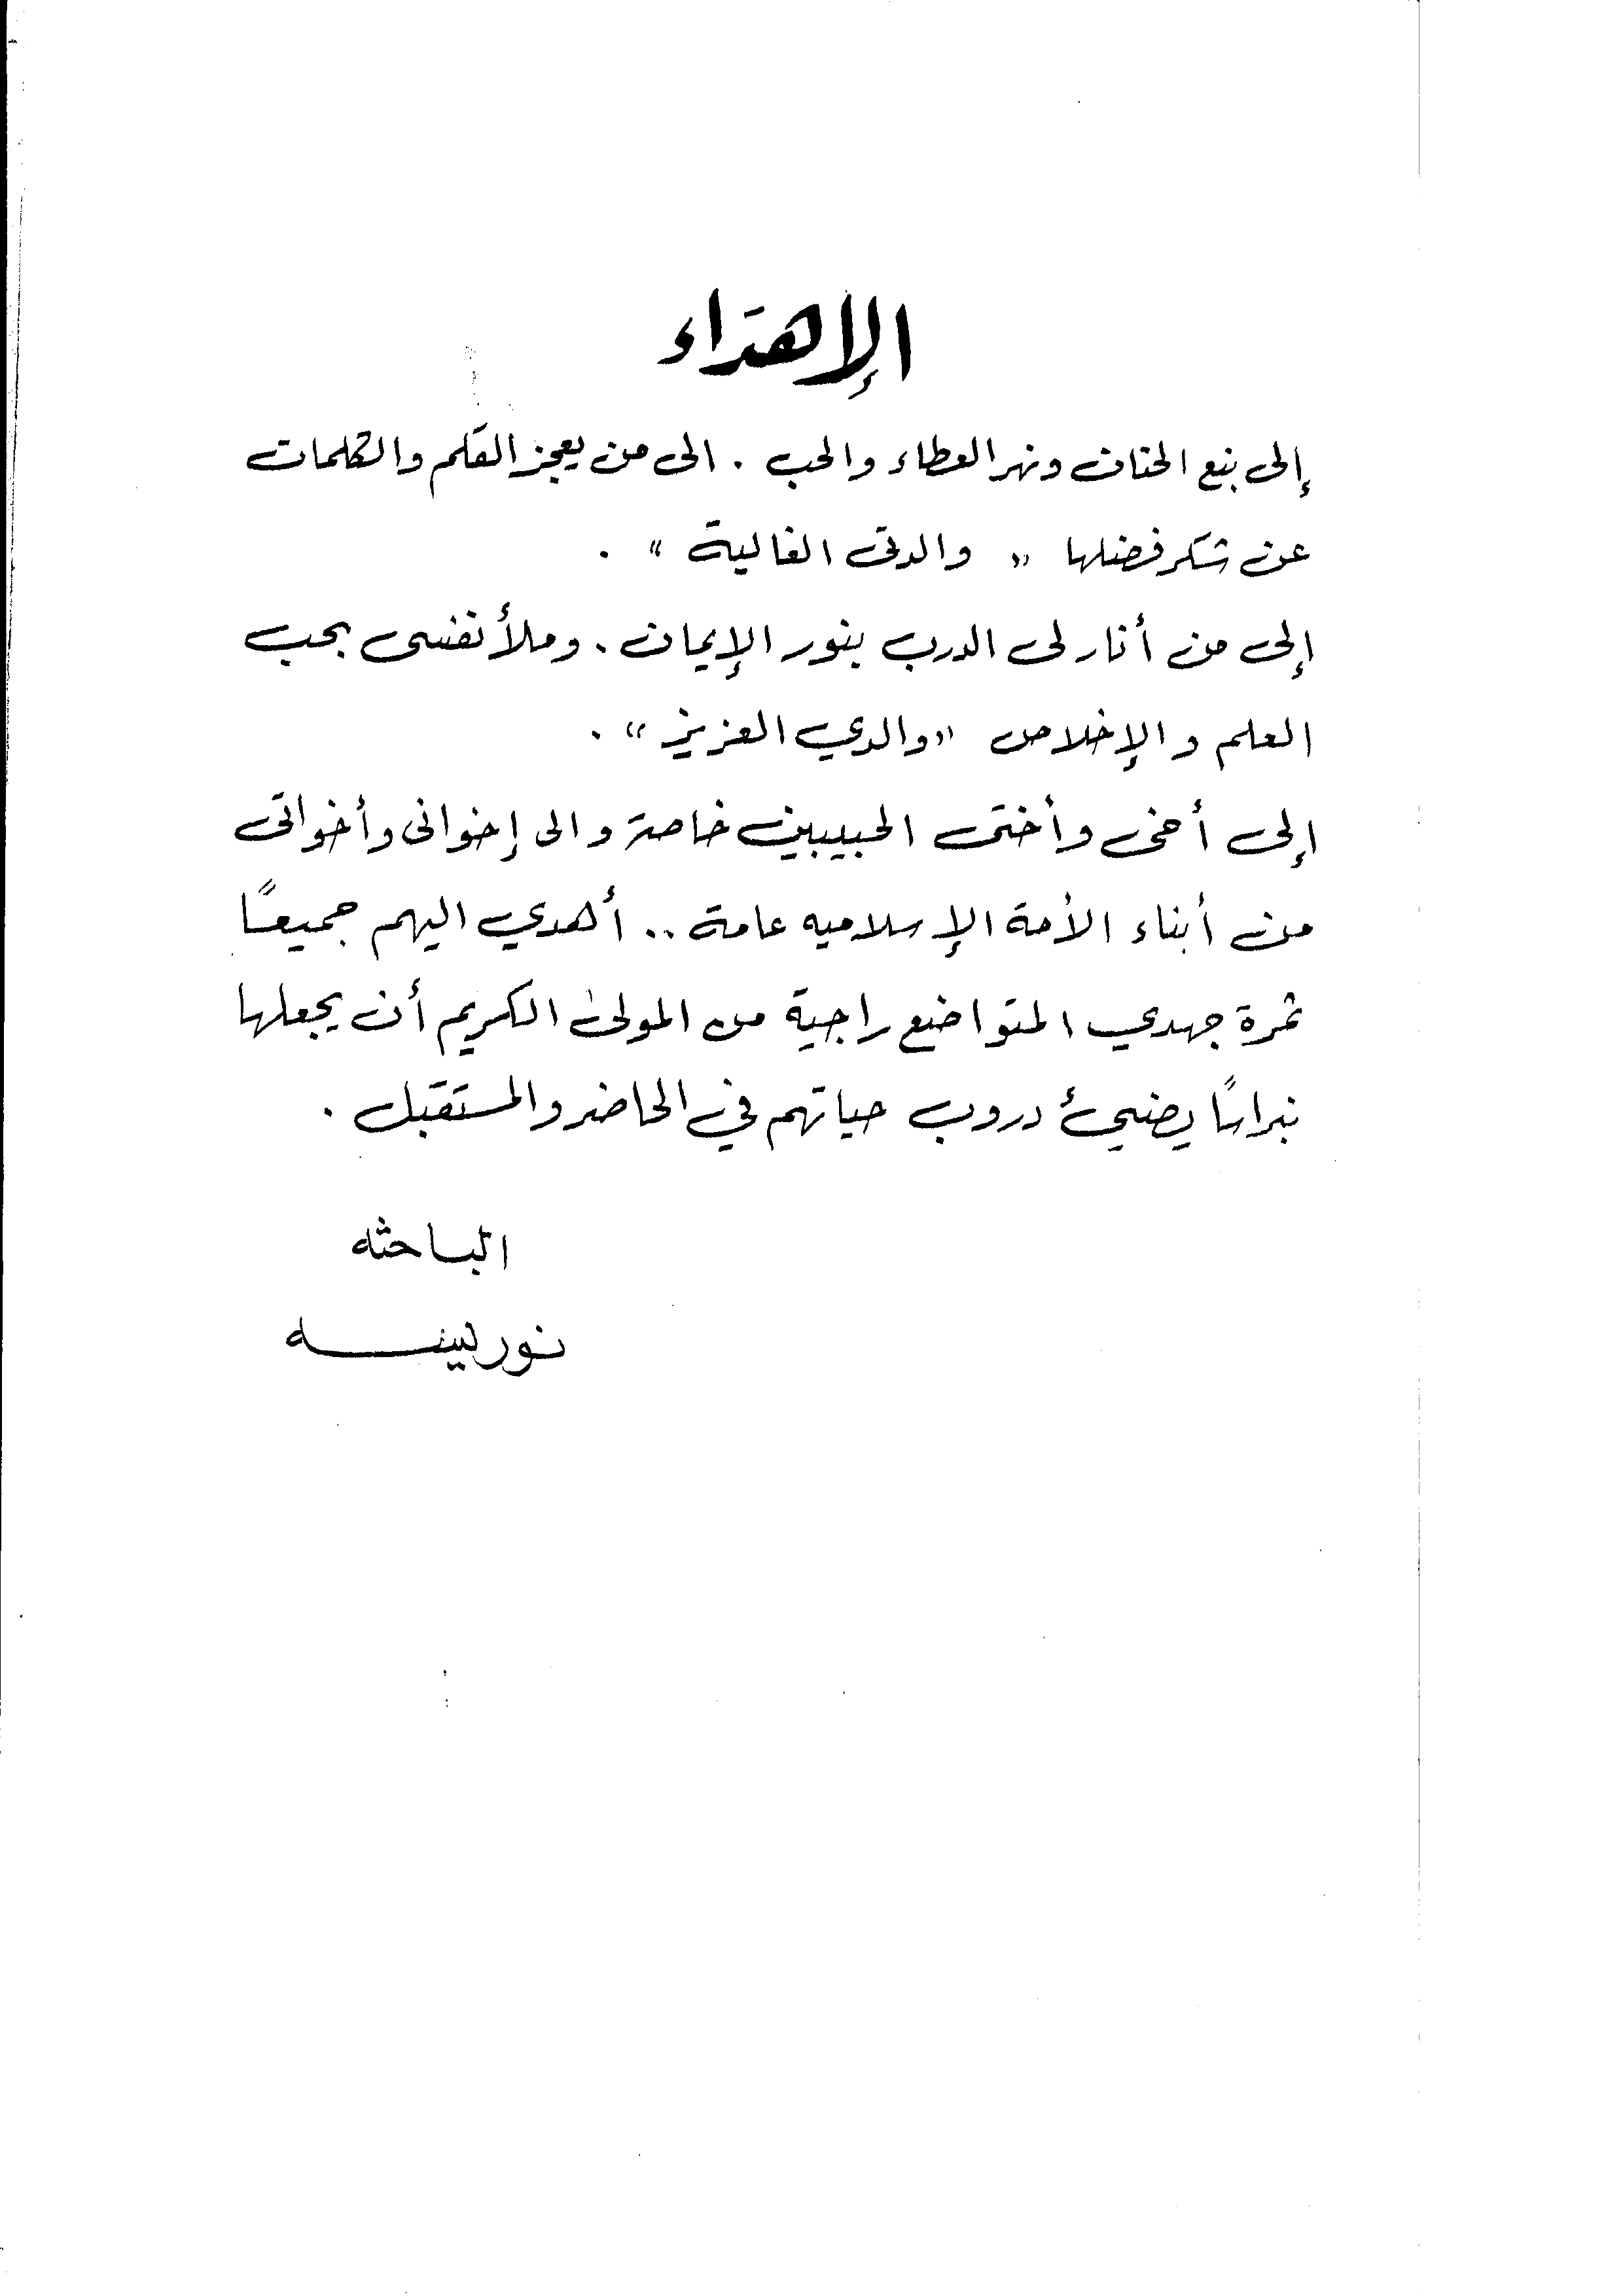 الإهداء
إلى نبع الحنان ونهر العطاء والحب . الى من يعجز القلم والكلمات
عن شكر فضلها " والدتى الغالية " .
إلى من أنار لى الدرب بنور الإيمان . وملأ نفسى بحب
العلم والإخلاص " والدي العزيز " .
إلى أخى وأختى الحبيبين خاصة والى إخوانى وأخواتى
من أبناء الأمة الإسلاميه عامة .. أهدي اليهم جميعًا
ثمرة جهدي المتواضع راجية من المولى الكريم أن يجعلها
نبراسًا يضيئ دروب حياتهم في الحاضر والمستقبل .
الباحثه
نور لينه